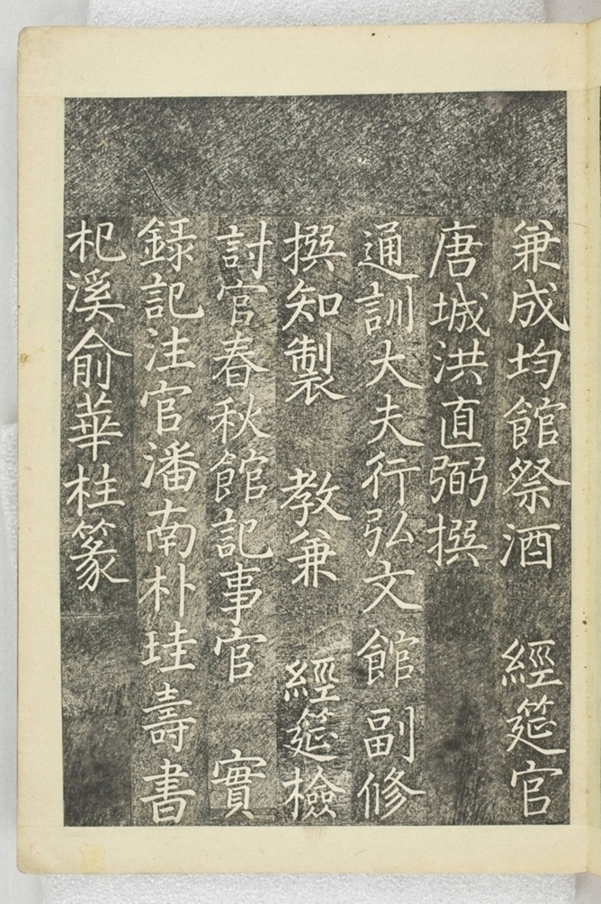 兼成均館祭酒 經筵官
唐城洪直弼撰
通訓大夫行弘文館副修
撰知製 教兼 經筵檢
討官春秋館記事官 實
錄記注官潘南朴珪壽書
杞溪俞華柱篆